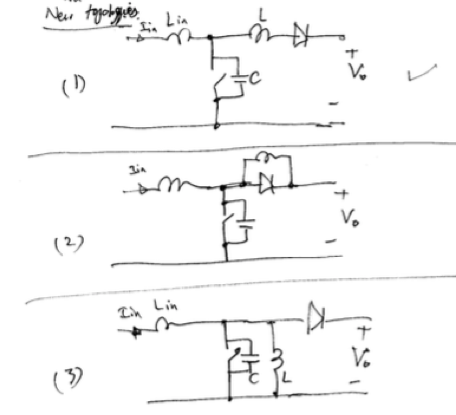 New topologies
Iin Lin L
(1) C + Vo -
Iin
(2) + Vo -
Iin Lin
(3) C L + Vo -